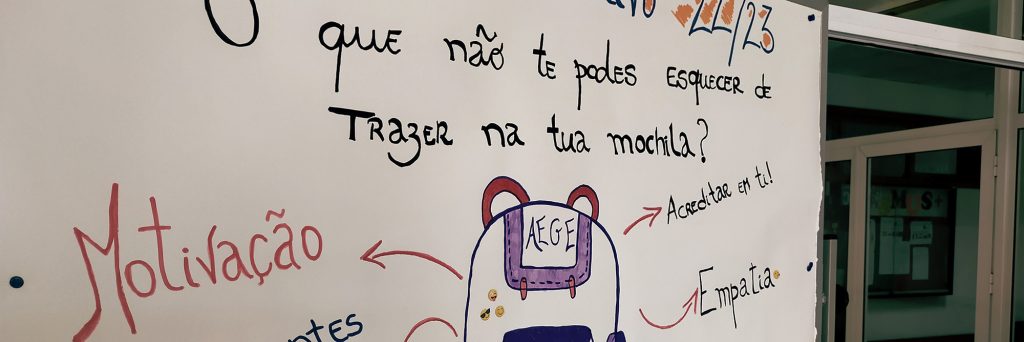 22/23
O que não te podes esquecer de
Trazer na tua mochila?
Acreditar em ti!
AEGE
Motivação
Empatia